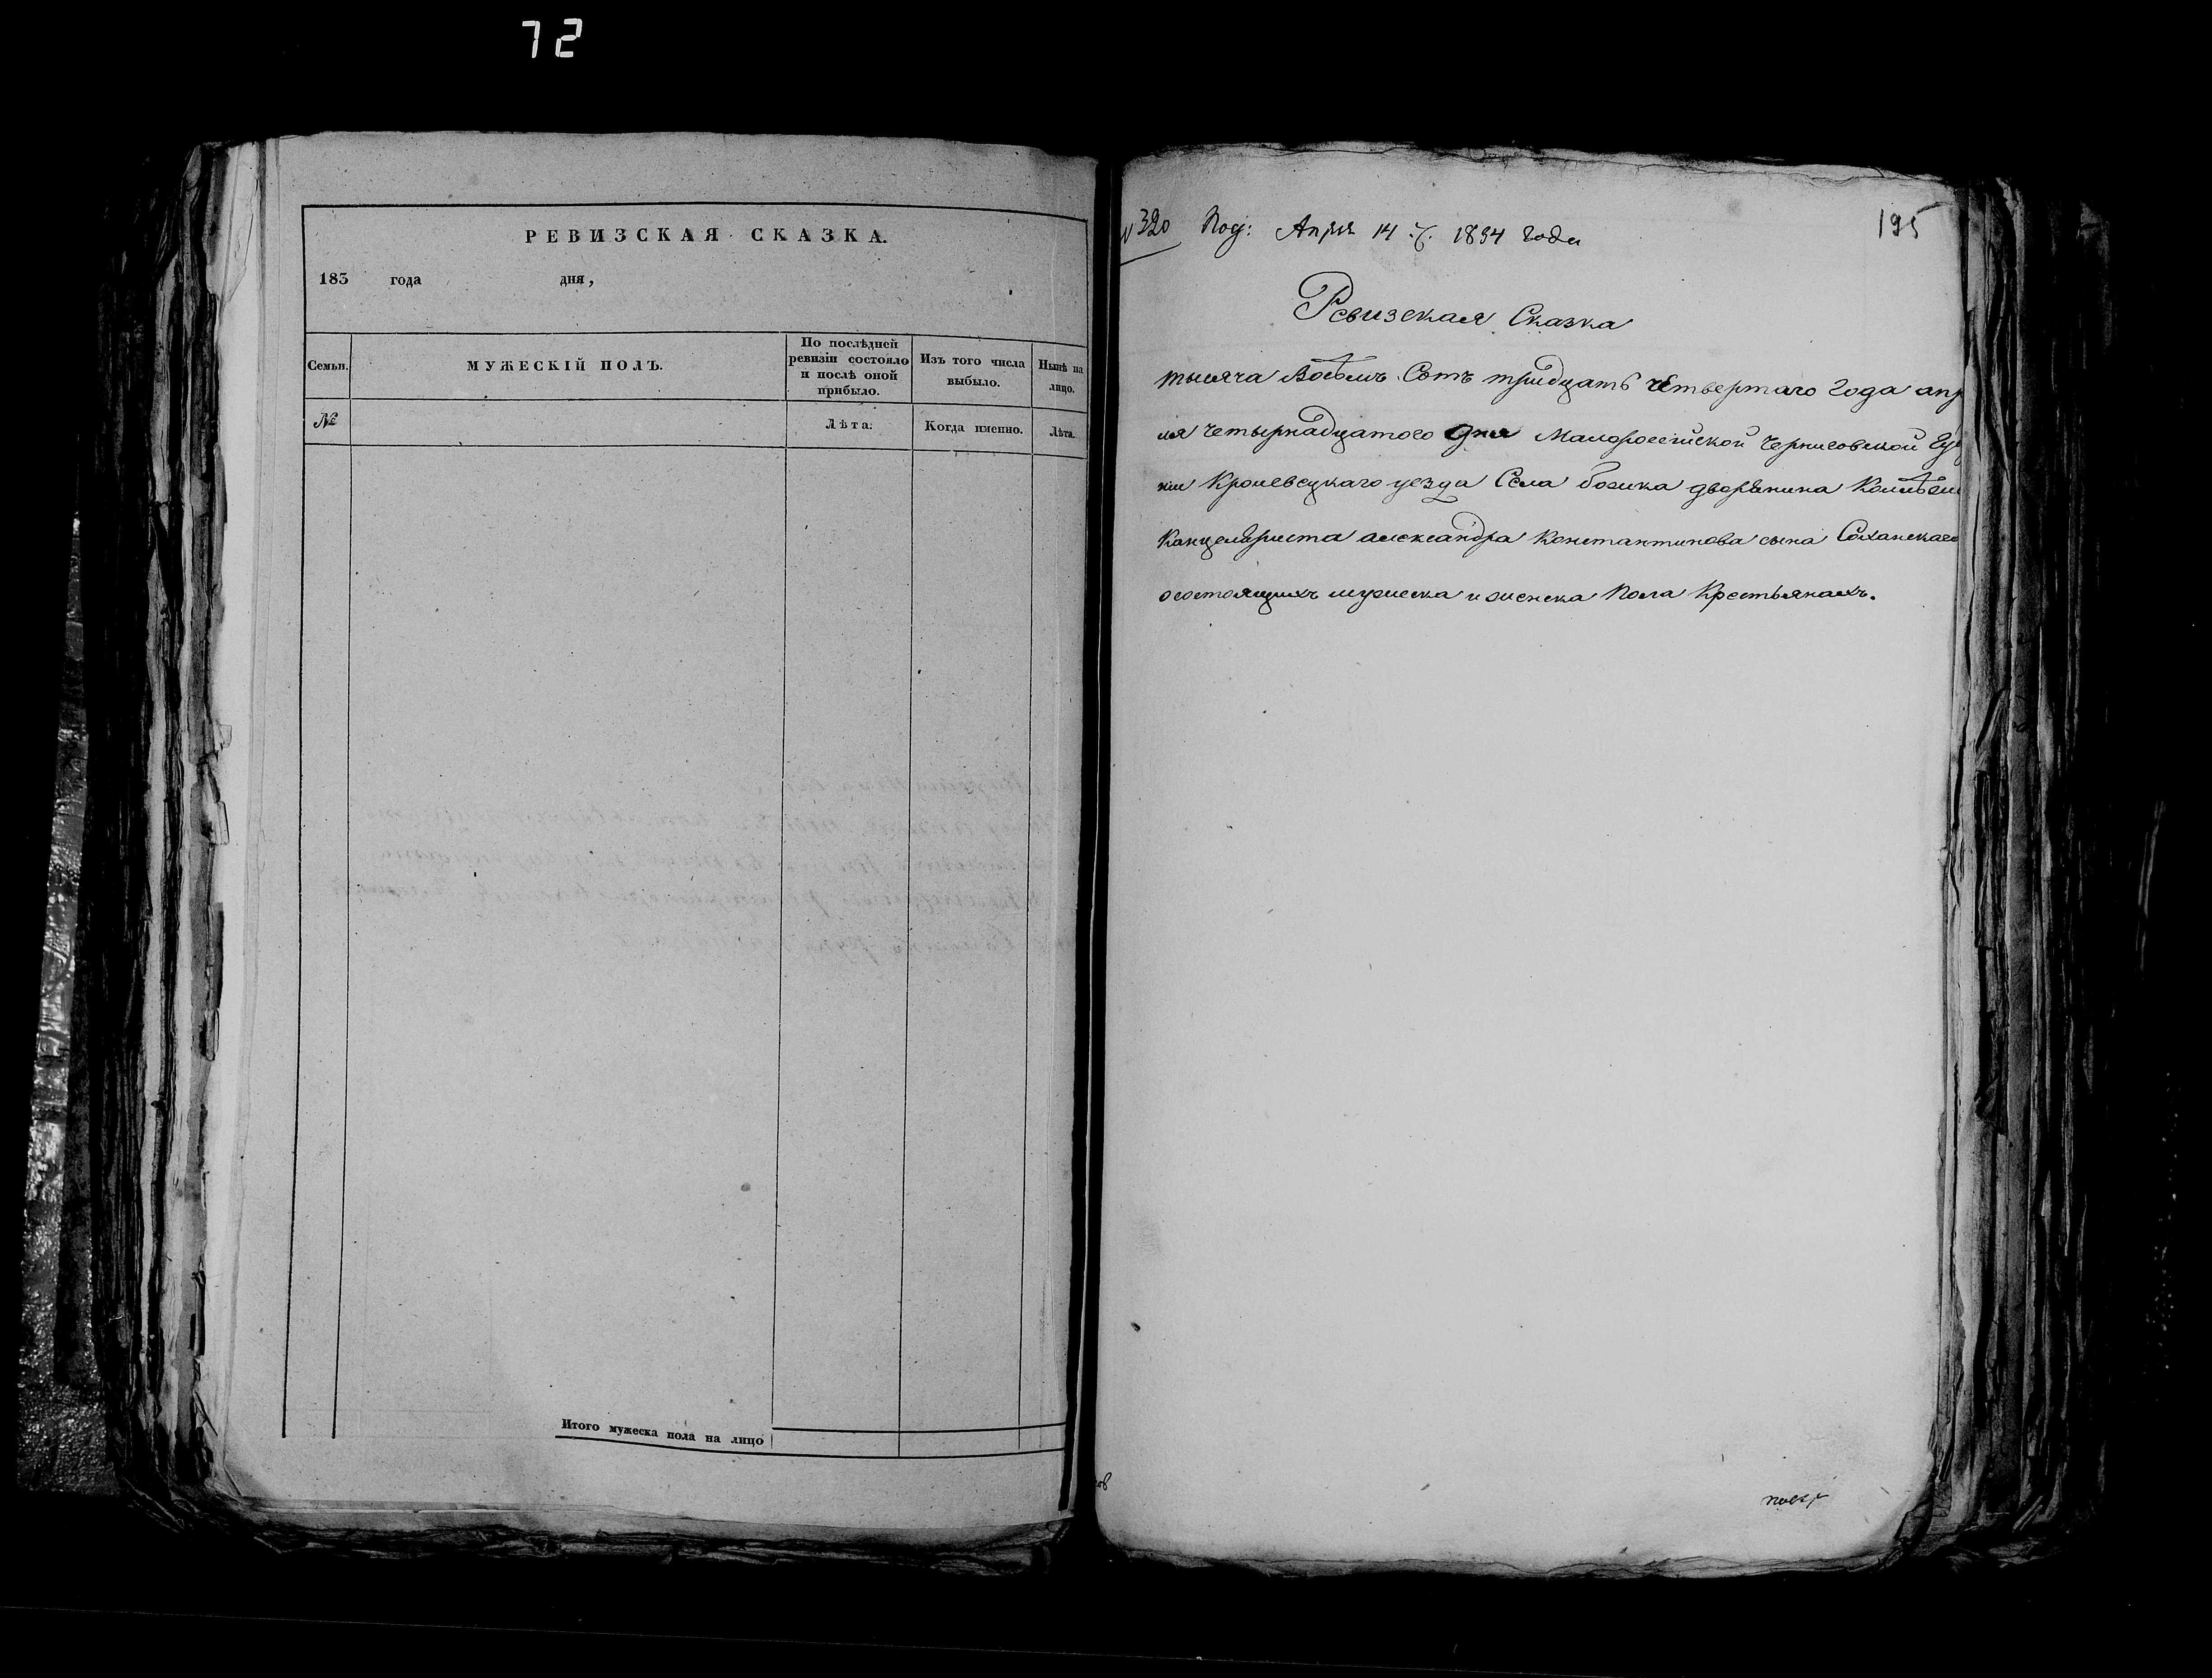 72
РЕВИЗСКАЯ СКАЗКА.
183 года дня,
Семьи.
МУЖЕСКІЙ ПОЛЪ.
По послѣдней
ревизіи состояло
и послѣ оной
прибыло.
Изъ того числа
выбыло.
Нынѣ на
лицо.
№
Лѣта.
Когда именно.
Лѣта.
Итого мужеска пола на лицо
195
№ 320 Под: Апрѣ 14 ч. 1834 года
Ревизская Сказка
тысяча Восѣмъ Сотъ тридцать четвертаго года апр
ля четырнадцатого дня Малоросейской Черниговской Гу
ніи Кролевецкаго уезда Села дворянина
Канцеляриста александра Константинова сына
осостоящихъ мужеска и женска Пола Крестьянахъ.